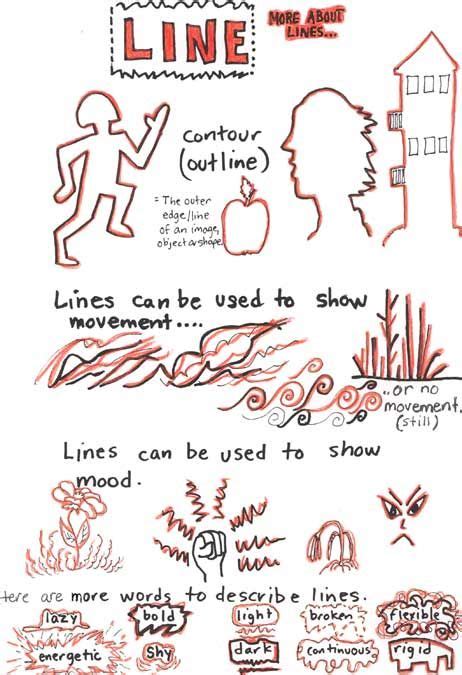 LINE
MORE ABOUT
LINES...
contour
(outline)
= The outer
edge/line
of an image,
object or shape.
Lines can be used to show
movement....
...or no
movement.
(still)
Lines can be used to show
mood.
Here are more words to describe lines.
lazy bold light broken flexible
energetic shy dark continuous rigid